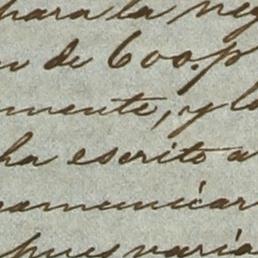 para la neg
n de 600.p
mente, y la
ha escrito a
comunicar
pues varia